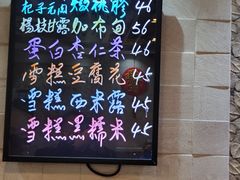 杞子元肉燉桃膠 46
楊枝甘露加布甸 56
蛋白杏仁茶 46
雪糕豆腐花 45
雪糕西米露 45
雪糕黑糯米 45